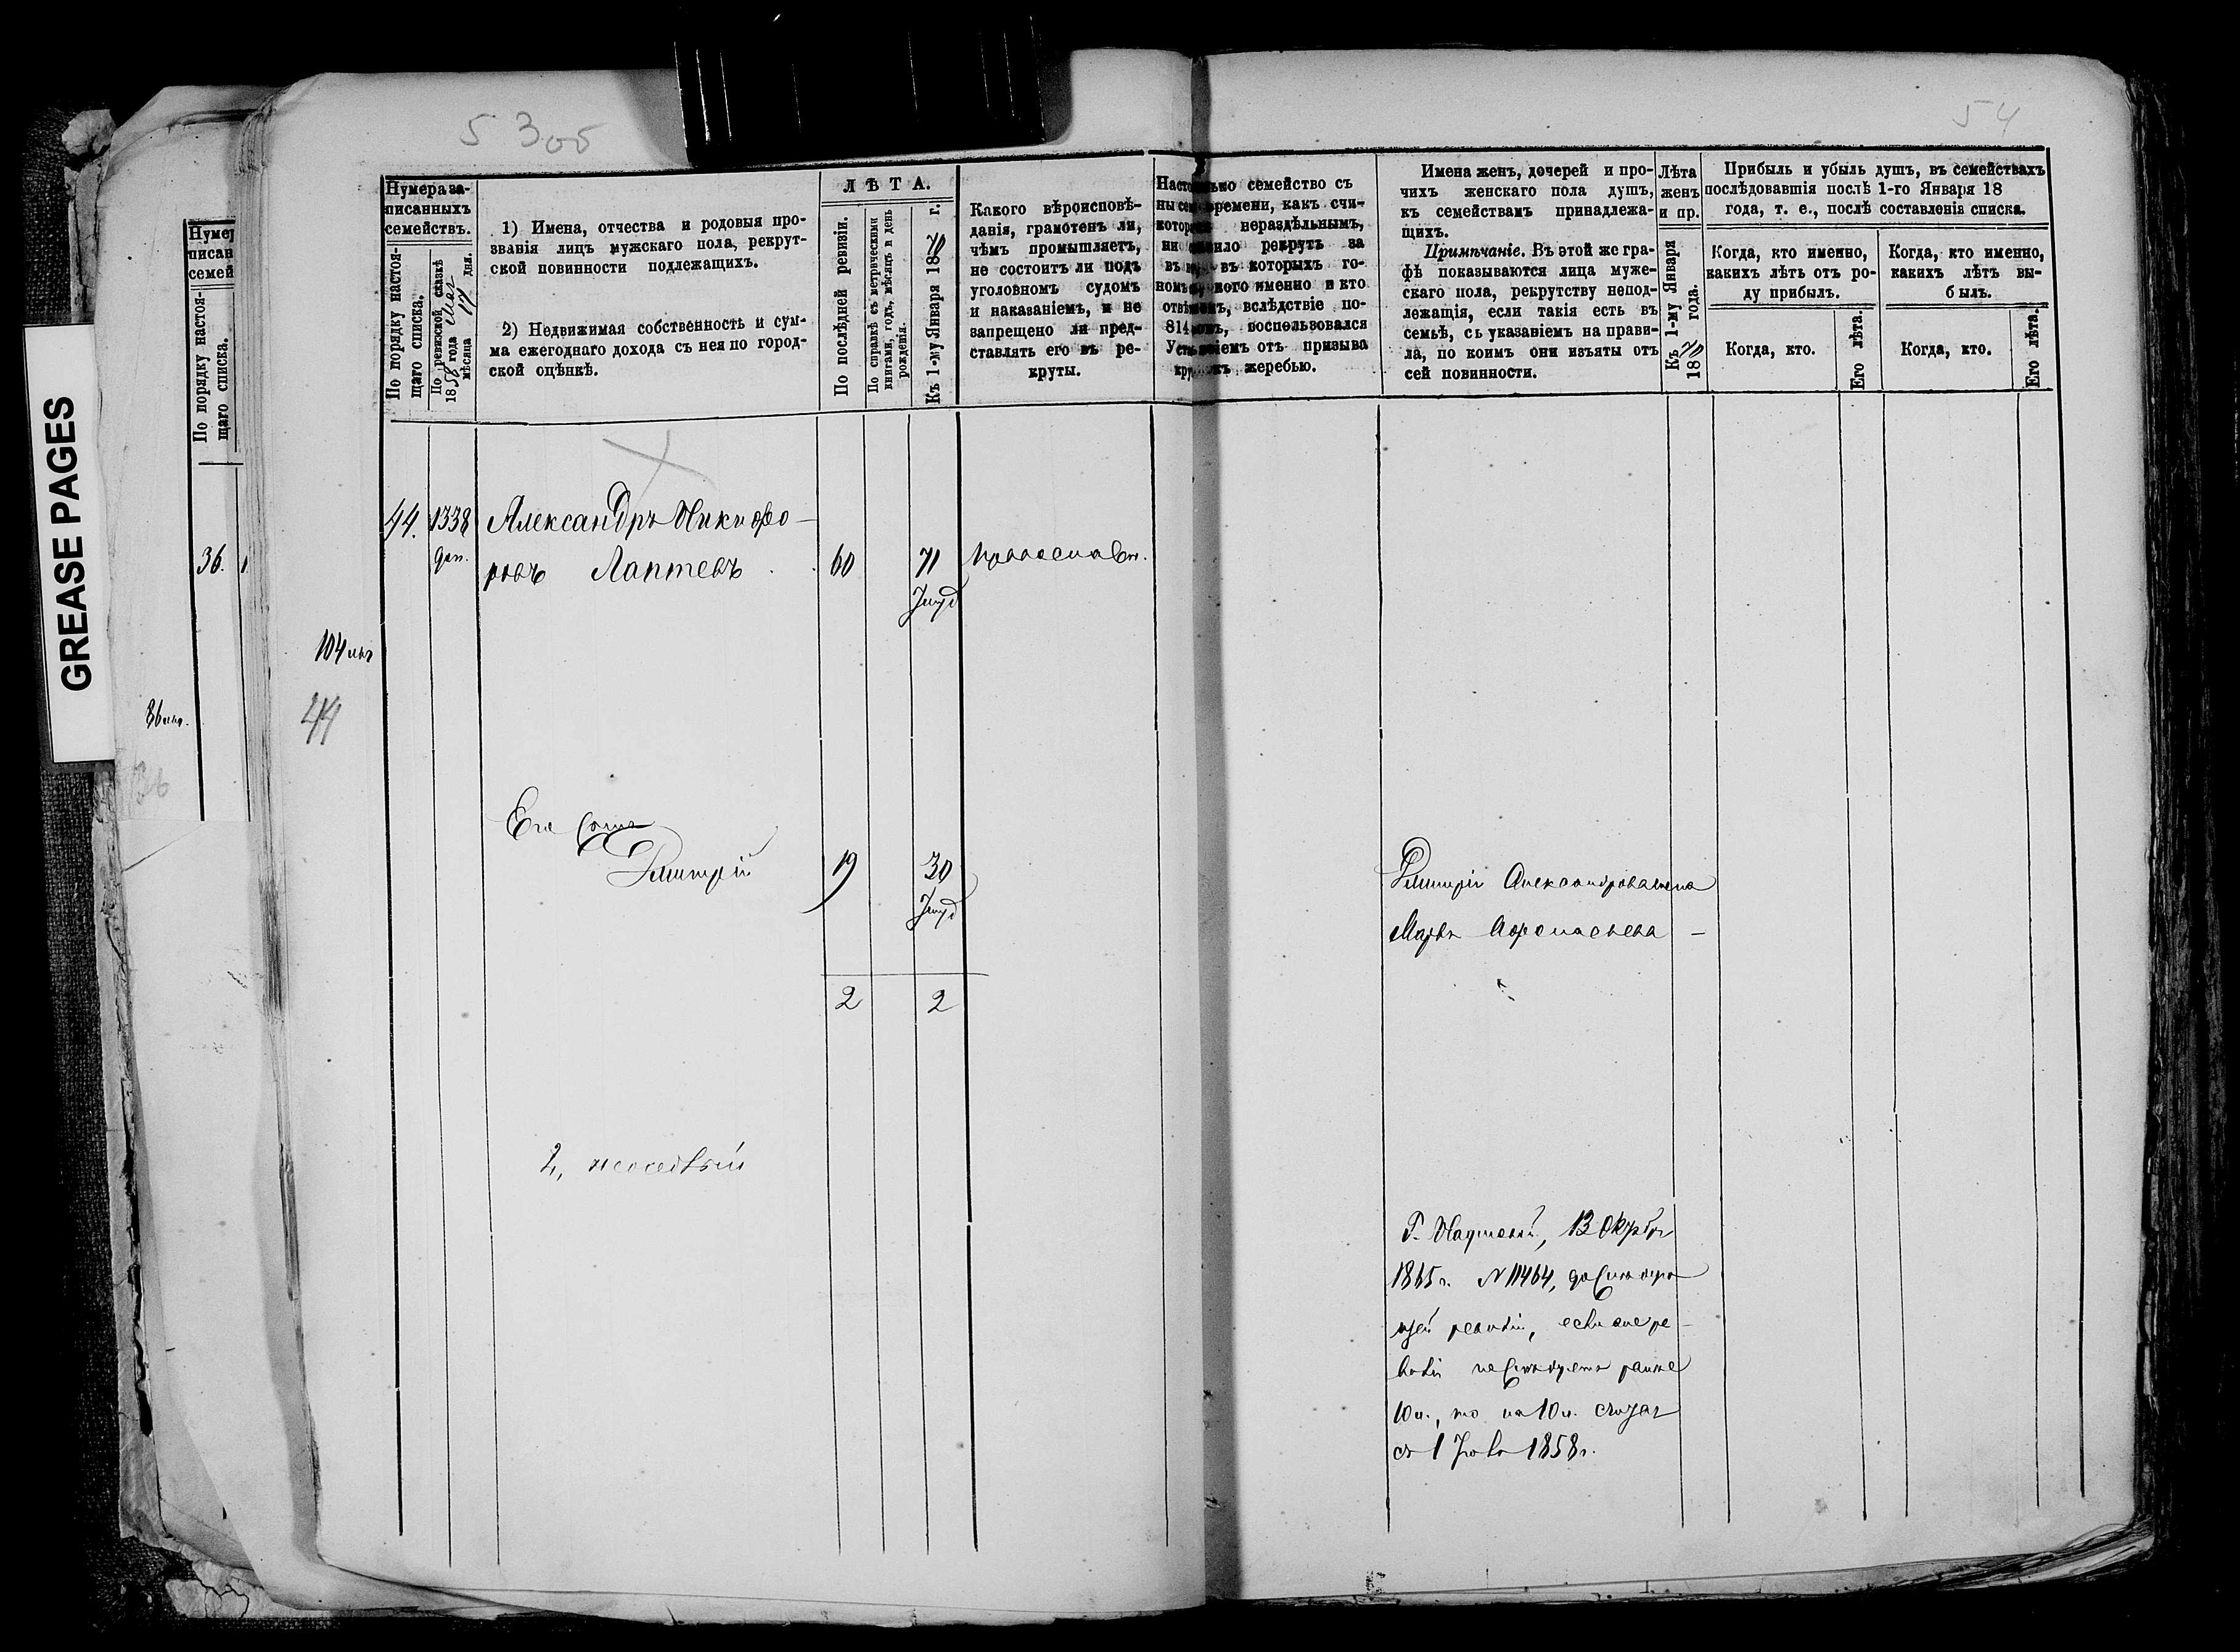 GREASE PAGES
53об
54
Нумера за-
писанныхъ
семействъ.
По порядку настоя-
щаго списка.
По ревизской сказкѣ
1858 года мая
мѣсяца дня.
1) Имена, отчества и родовыя про-
званія лицъ мужскаго пола, рекрут-
ской повинности подлежащихъ.
2) Недвижимая собственность и сум-
ма ежегоднаго дохода съ нея по город-
ской оцѣнкѣ.
ЛѢТА.
По послѣдней ревизіи.
По справкѣ съ метрическими
книгами, годъ, мѣсяцъ и день
рожденія.
Къ 1-му Января 1870 г.
Какого вѣроисповѣ-
данія, грамотенъ ли,
чѣмъ промышляетъ,
не состоитъ ли подъ
уголовномъ судомъ
и наказаніемъ, и не
запрещено ли пред-
ставлять его въ ре-
круты.
семейство съ
времени, какъ счи-
нераздѣльнымъ,
рекрутъ за
въ которыхъ го-
кого именно и кто
вслѣдствіе по-
814 воспользовался
отъ призыва
жеребью.
Имена женъ, дочерей и про-
чихъ женскаго пола душъ,
къ семействамъ принадлежа-
щихъ.
Примѣчаніе. Въ этой же гра-
фѣ показываются лица муже-
скаго пола, рекрутству непод-
лежащія, если такія есть въ
семьѣ, съ указаніемъ на прави-
ла, по коимъ они изъяты отъ
сей повинности.
Лѣта
женъ
и пр.
Къ 1-му Января
1870 года.
Прибыль и убыль душъ, въ семействахъ
послѣдовавшія послѣ 1-го Января 18
года, т. е., послѣ составленія списка.
Когда, кто именно,
какихъ лѣтъ отъ ро-
ду прибылъ.
Когда, кто.
Его лѣта.
Когда, кто именно,
какихъ лѣтъ вы-
былъ.
Когда, кто.
Его лѣта.
44. 1338 Александръ Никифо-
доп. ровъ Лаптевъ 60 71 православн.
44
Его сынъ
Дмитрій 19 30
Дмитрія Александрова жена
Марья Афонасьева —
2 2
2, неимѣетъ
13 Октября
1865 г. № 11464, до слѣдую
щей ревизіи, если оне ре-
визіи не послѣдуетъ ранѣе
10 л., то на 10 л. считая
съ 1858 г.
Нумер
писан
семей
По порядку настоя-
щаго списка.
36.
36